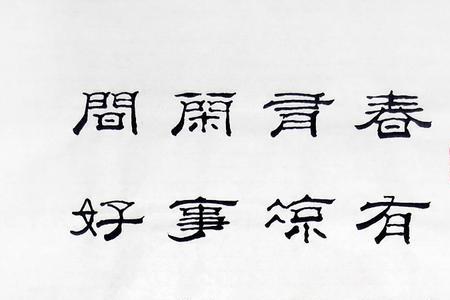 春有
有凉
閑事
間好